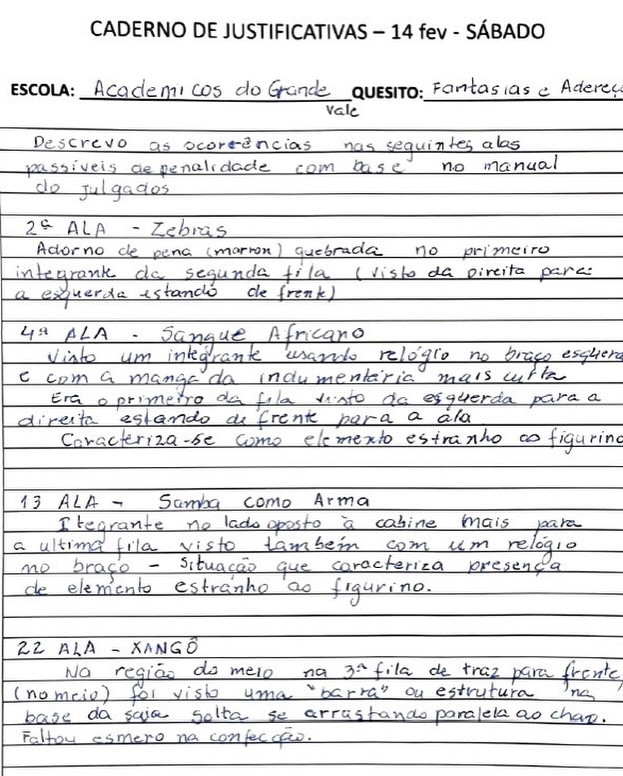 CADERNO DE JUSTIFICATIVAS – 14 fev - SÁBADO
ESCOLA: Academicos do Grande Vale QUESITO: Fantasias e Adereç
Descrevo as ocorrências nas seguintes alas
passíveis de penalidade com base no manual
do julgados
2ª ALA - Zebras
Adorno de pena (marron) quebrada no primeiro
integrante da segunda fila (visto da direita para
a esquerda estando de frente)
4ª ALA - Sangue Africano
Visto um integrante usando relógio no braço esquera
e com a manga da indumentária mais curta
Era o primeiro da fila visto da esquerda para a
direita estando de frente para a ala
Caracteriza-se como elemento estranho ao figurino
13 ALA - Samba como Arma
Itegrante no lado oposto à cabine mais para
a ultima fila visto também com um relógio
no braço - Situação que caracteriza presença
de elemento estranho ao figurino.
22 ALA - XANGÔ
Na região do meio na 3ª fila de traz para frente
(no meio) foi visto uma "barra" ou estrutura na
base da saia solta se arrastando paralela ao chao.
Faltou esmero na confecção.